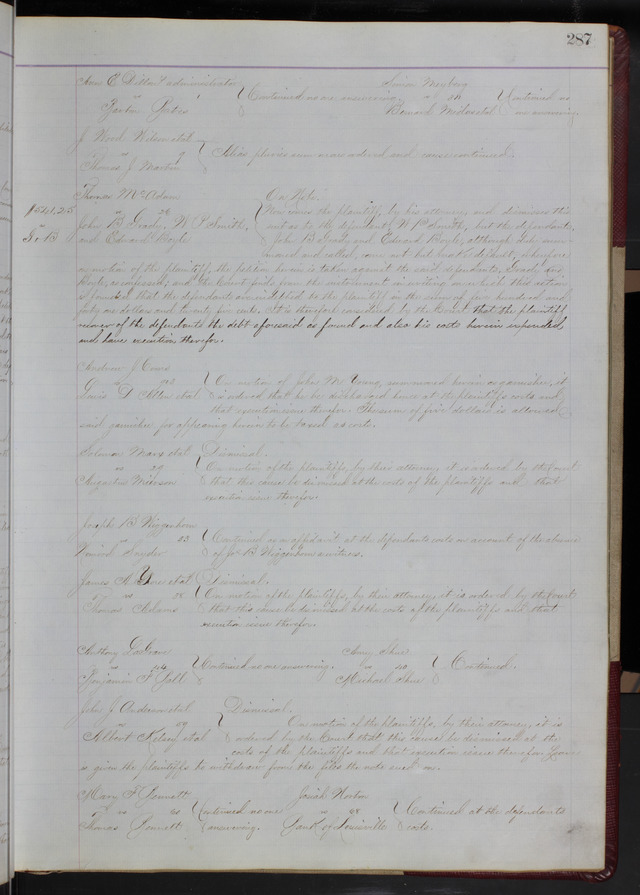 287
Ann E Dillon administrator
vs
Continued as no answering
Simon Mayberg
vs 111
Bernard
Continued as
no answering
J Wood Wilson et al
vs 9
Thomas J. Martin
Alias pluries summons ordered and cause continued.
Thomas McAdam
On Note.
$541.25
vs 29
John B Grady, W P Smith,
and Edward Boyle
Now comes the plaintiff, by his attorney and dismisses this
suit as to the defendant W P Smith, but the defendants
John B Grady and Edward Boyle, although duly sum-
moned and called, come not but make default, wherefore
on motion of the plaintiff, the petition herein is taken against the said defendants, Grady and
Boyle, as confessed; and the Court finds from the instrument in writing on which this action
is founded that the defendants are indebted to the plaintiff in the sum of five hundred and
forty one dollars and twenty five cents. It is therefore considered by the Court that the plaintiff
recover of the defendants the debt aforesaid as found and also his costs herein expended
and have execution therefor.
Andrew J
vs 203
Lewis D Allen et al
On motion of John M Young, summoned herein as garnishee, it
is ordered that he be discharged hence at the plaintiffs costs and
that execution issue therefor. The sum of five dollars is allowed
said garnishee for appearing herein to be taxed as costs.
Solomon Marx et al
Dismissal.
vs 29
Augustus
On motion of the plaintiffs, by their attorney it is ordered by the Court
that this cause be dismissed at the costs of the plaintiffs and that
execution issue therefor.
Joseph B Wiggenhorn
vs 33
Snyder
Continued on affidavit at the defendants costs on account of the absence
of Jos B Wiggenhorn a witness.
James A et al
Dismissal.
vs 38
Thomas Adams
On motion of the plaintiffs, by their attorney, it is ordered by the Court
that this cause be dismissed at the costs of the plaintiffs and that
execution issue therefor.
Anthony LaGrave
vs 104
Benjamin F
Continued as no answering.
Amy Shue
vs 110
Michael Shue
Continued.
John J Anderson et al
Dismissal.
vs 59
Albert et al
On motion of the plaintiffs, by their attorney, it is
ordered by the Court that this cause be dismissed at the
costs of the plaintiffs and that execution issue therefor. Leave
is given the plaintiffs to withdraw from the files the note sued on.
Mary F Bennett
vs
Thomas Bennett
Continued as no
answering.
Josiah Norton
vs
Bank of Louisville
Continued at the defendants
costs.